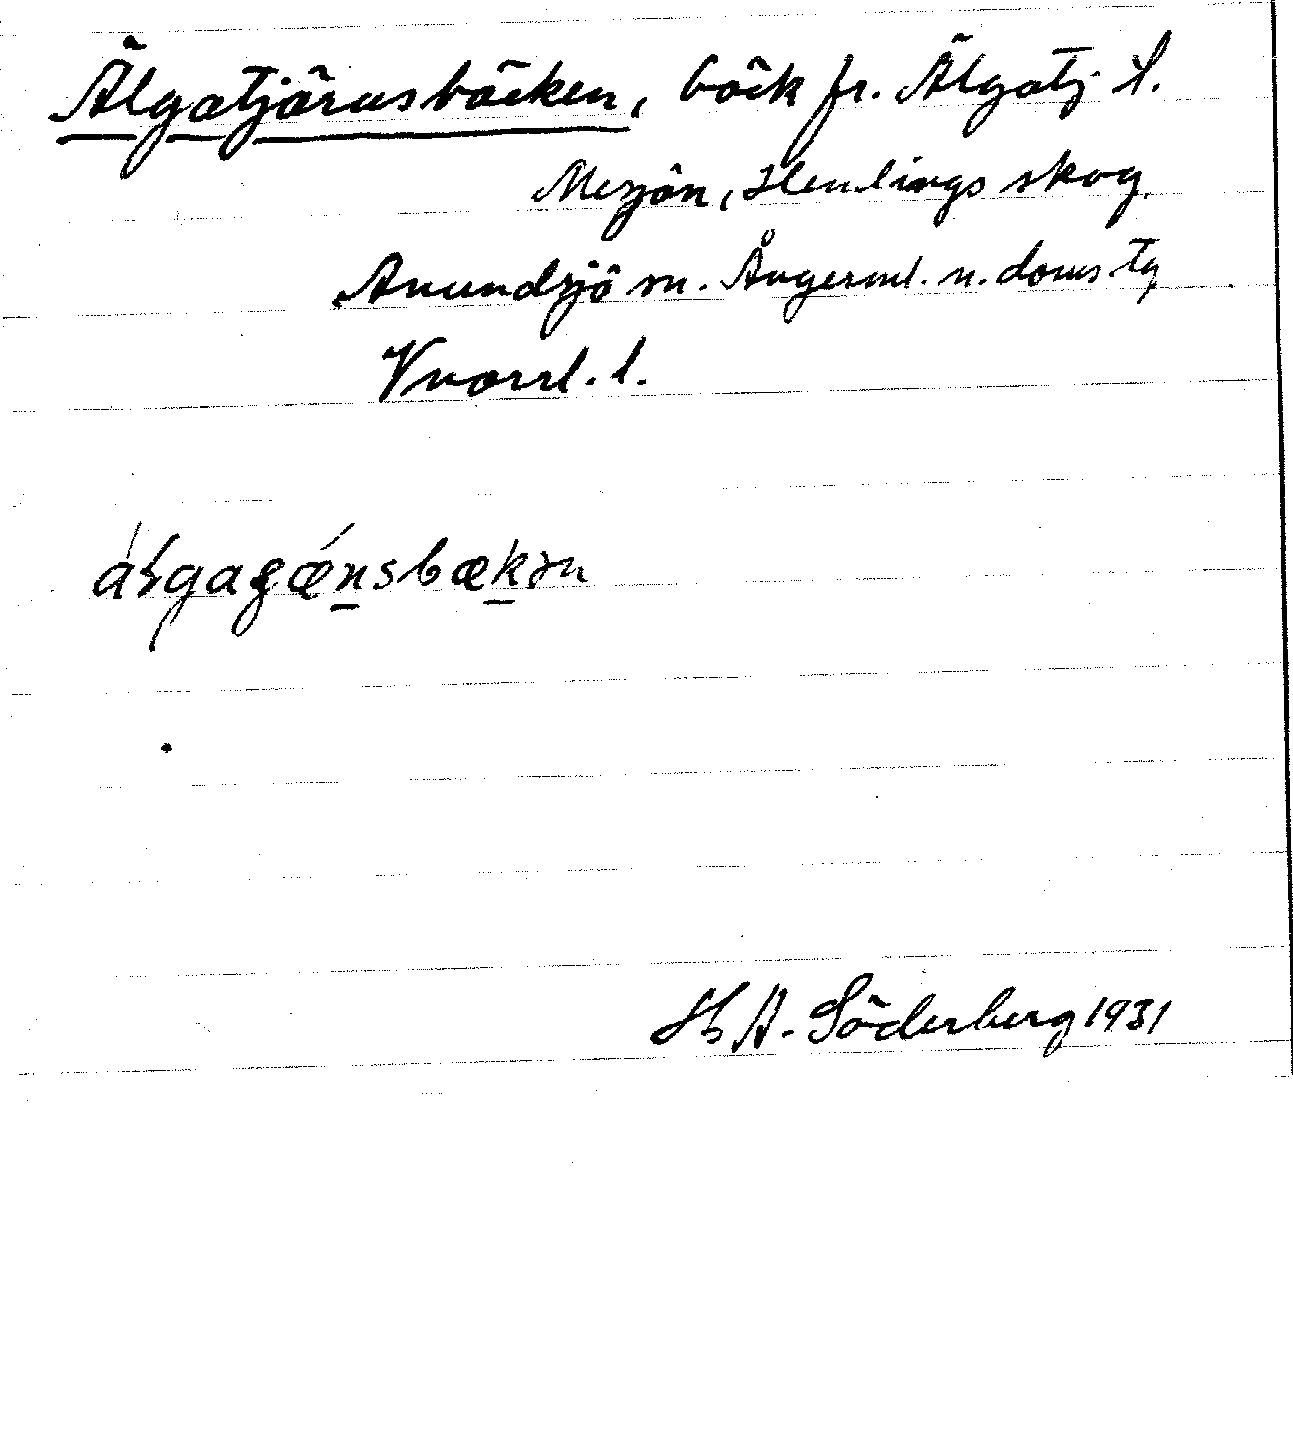 Älgatjärnsbäcken, bäck fr. Älgatj. t.
Mesjön, Hemlings skog,
Anundsjö sn. Ångerml. n. doms. tg
Vnorrl. l.
álgaʒǽnsbækən
H A. Söderberg 1931